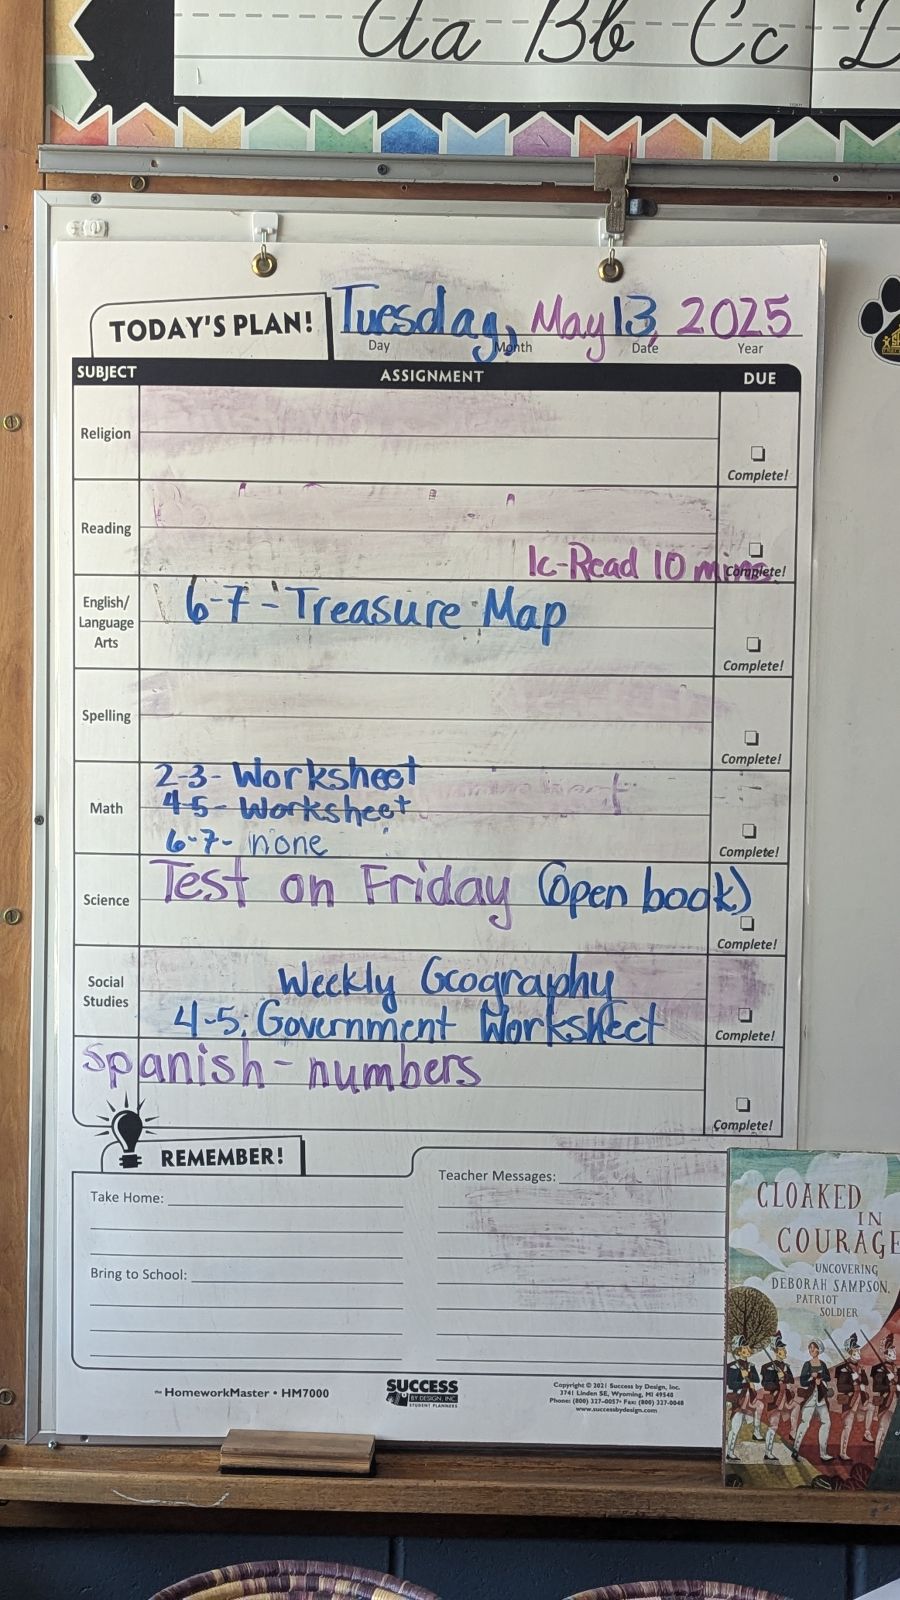 Aa Bb Cc D
TODAY'S PLAN! Tuesday, May 13, 2025
Day Month Date Year
SUBJECT ASSIGNMENT DUE
Religion
Complete!
Reading
1c-Read 10 mins.
Complete!
English/
Language
Arts
6-7-Treasure Map
Complete!
Spelling
Complete!
Math
2-3-Worksheet
4-5-Worksheet
6-7-none
Complete!
Science
Test on Friday (open book)
Complete!
Social
Studies
Weekly Geography
4-5: Government Worksheet
Complete!
Spanish-numbers
Complete!
REMEMBER!
Take Home:
Bring to School:
Teacher Messages:
~ HomeworkMaster • HM7000
SUCCESS
BY DESIGN, INC
STUDENT PLANNERS
Copyright © 2021 Success by Design, Inc.
3741 Linden SE, Wyoming, MI 49548
Phone: (800) 327-0057• Fax: (800) 327-0048
www.successbydesign.com
CLOAKED
IN
COURAGE
UNCOVERING
DEBORAH SAMPSON,
PATRIOT
SOLDIER